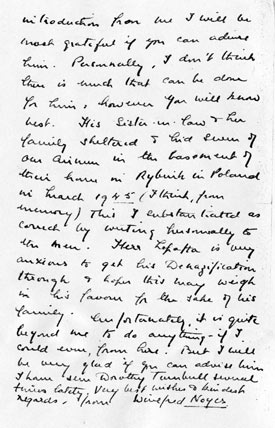 introduction from me I will be
most grateful if you can advise
him. Personally, I don't think
there is much that can be done
for him, however you will know
best. His Sister-in-law & her
family sheltered & hid seven of
our airmen in the basement of
their home in Rybnik in Poland
in March 1945 (I think, from
memory) This I substantiated as
correct by writing personally to
the men. Herr is very
anxious to get his Denazification
through & hopes this may weigh
in his favour for the sake of his
family. Unfortunately, it is quite
beyond me to do anything - if I
could even, from here. But I will
be very glad if you can advise him
I have seen Dorothy Turnbull several
times lately. Very best wishes & kindest
regards, from Winifred Noyce